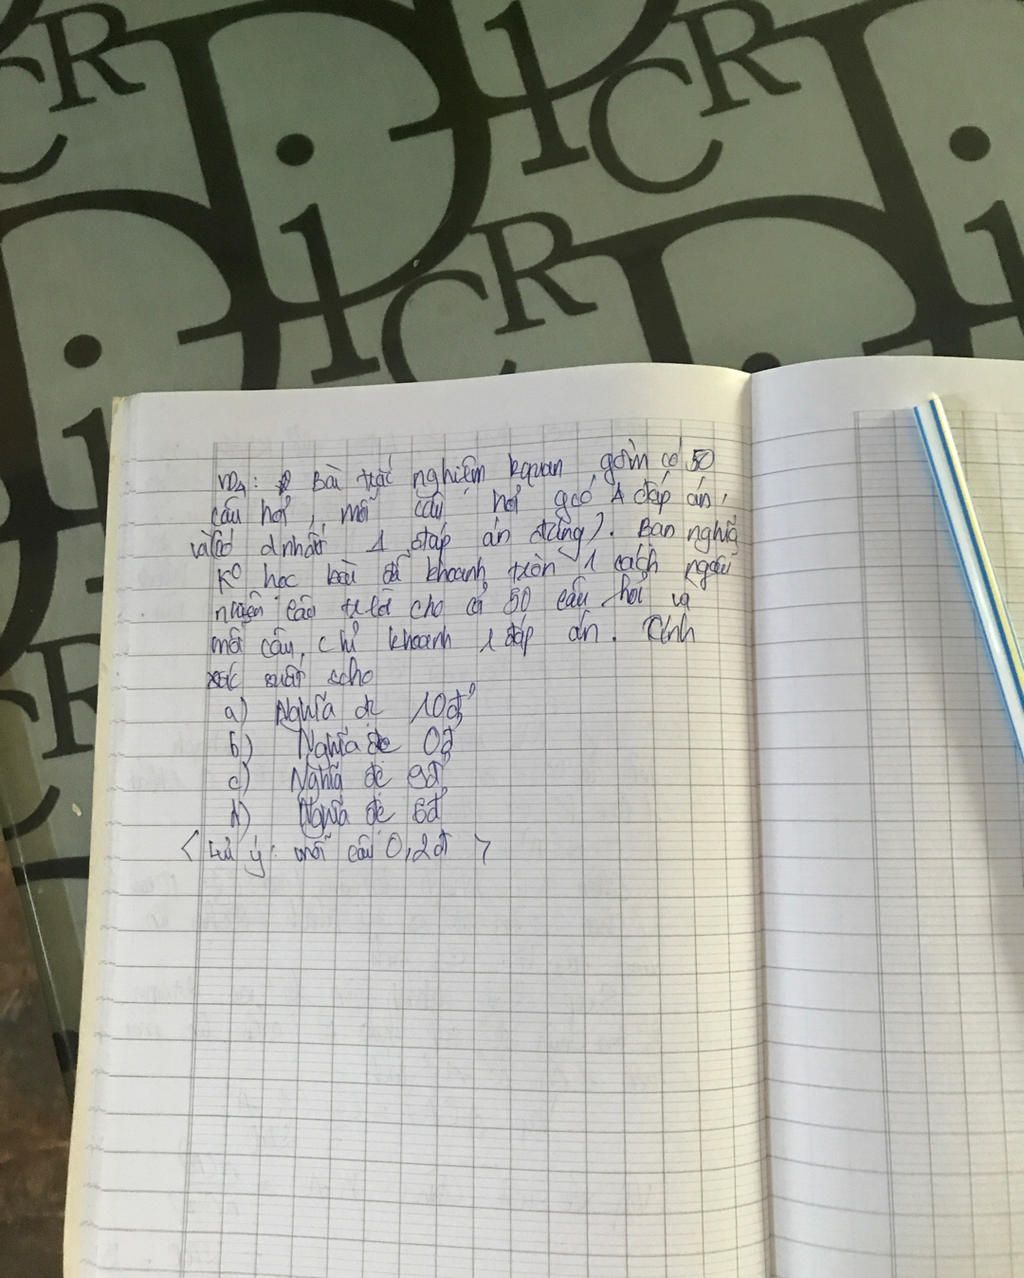 VD4: Bài trắc nghiệm kquan gồm có 50
câu hỏi, mỗi câu hỏi có 4 đáp án,
và có 1 đáp án đúng). Bạn nghĩa
Ko học bài đã khoanh tròn 1 cách ngẫu
nhiên câu tlời cho cả 50 câu hỏi và
mỗi câu, chỉ khoanh 1 đáp án. Tính
xác suất
a) Nghĩa đc 10đ'
b) Nghĩa đc 0đ
c) Nghĩa đc 9đ'
d) Nghĩa đc 6đ'
< Lưu ý: mỗi câu 0,2đ >